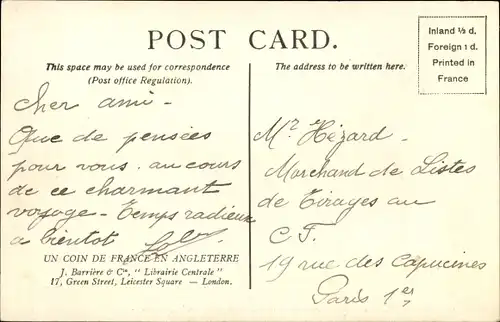 POST CARD.
Inland ½ d.
Foreign 1 d.
Printed in
France
This space may be used for correspondence
(Post office Regulation).
The address to be written here.
Cher ami -
Que de pensées
pour vous. au cours
de ce charmant
voyage - Temps radieux
a bientot
Mr Hézard -
Marchand de Listes
de Tirages au
C.F.
19 rue des Capucines
Paris 1er
UN COIN DE FRANCE EN ANGLETERRE
J. Barrière & Co, "Librairie Centrale"
17, Green Street, Leicester Square — London.